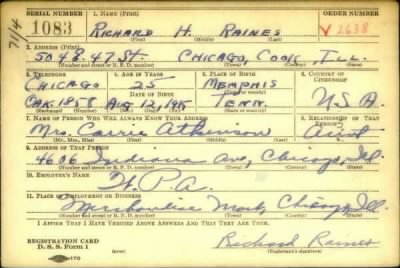 SERIAL NUMBER 1. NAME (Print) ORDER NUMBER
7/14 1083 RICHARD H. RAINES V 2638
(First) (Middle) (Last)
2. ADDRESS (Print)
5048. 47 St CHICAGO, COOK, ILL.
(Number and street or R. F. D. number) (Town) (County) (State)
3. TELEPHONE 4. AGE IN YEARS 5. PLACE OF BIRTH 6. COUNTRY OF CITIZENSHIP
CHICAGO 25 MEMPHIS
DATE OF BIRTH
OAK. 1858 AUG 12, 1915 TENN. U.S.A.
(Exchange) (Number) (Mo.) (Day) (Yr.) (State or country)
7. NAME OF PERSON WHO WILL ALWAYS KNOW YOUR ADDRESS 8. RELATIONSHIP OF THAT PERSON
Mrs. Carrie Atkinson Aunt
(Mr., Mrs., Miss) (First) (Middle) (Last)
9. ADDRESS OF THAT PERSON
4606 Indiana Ave, Chicago, Ill.
(Number and street or R. F. D. number) (Town) (County) (State)
10. EMPLOYER'S NAME
W.P.A.
11. PLACE OF EMPLOYMENT OR BUSINESS
Merchandise Mart, Chicago, Ill.
(Number and street or R. F. D. number) (Town) (County) (State)
I AFFIRM THAT I HAVE VERIFIED ABOVE ANSWERS AND THAT THEY ARE TRUE.
REGISTRATION CARD
D. S. S. Form 1
Richard Raines
(Registrant's signature)